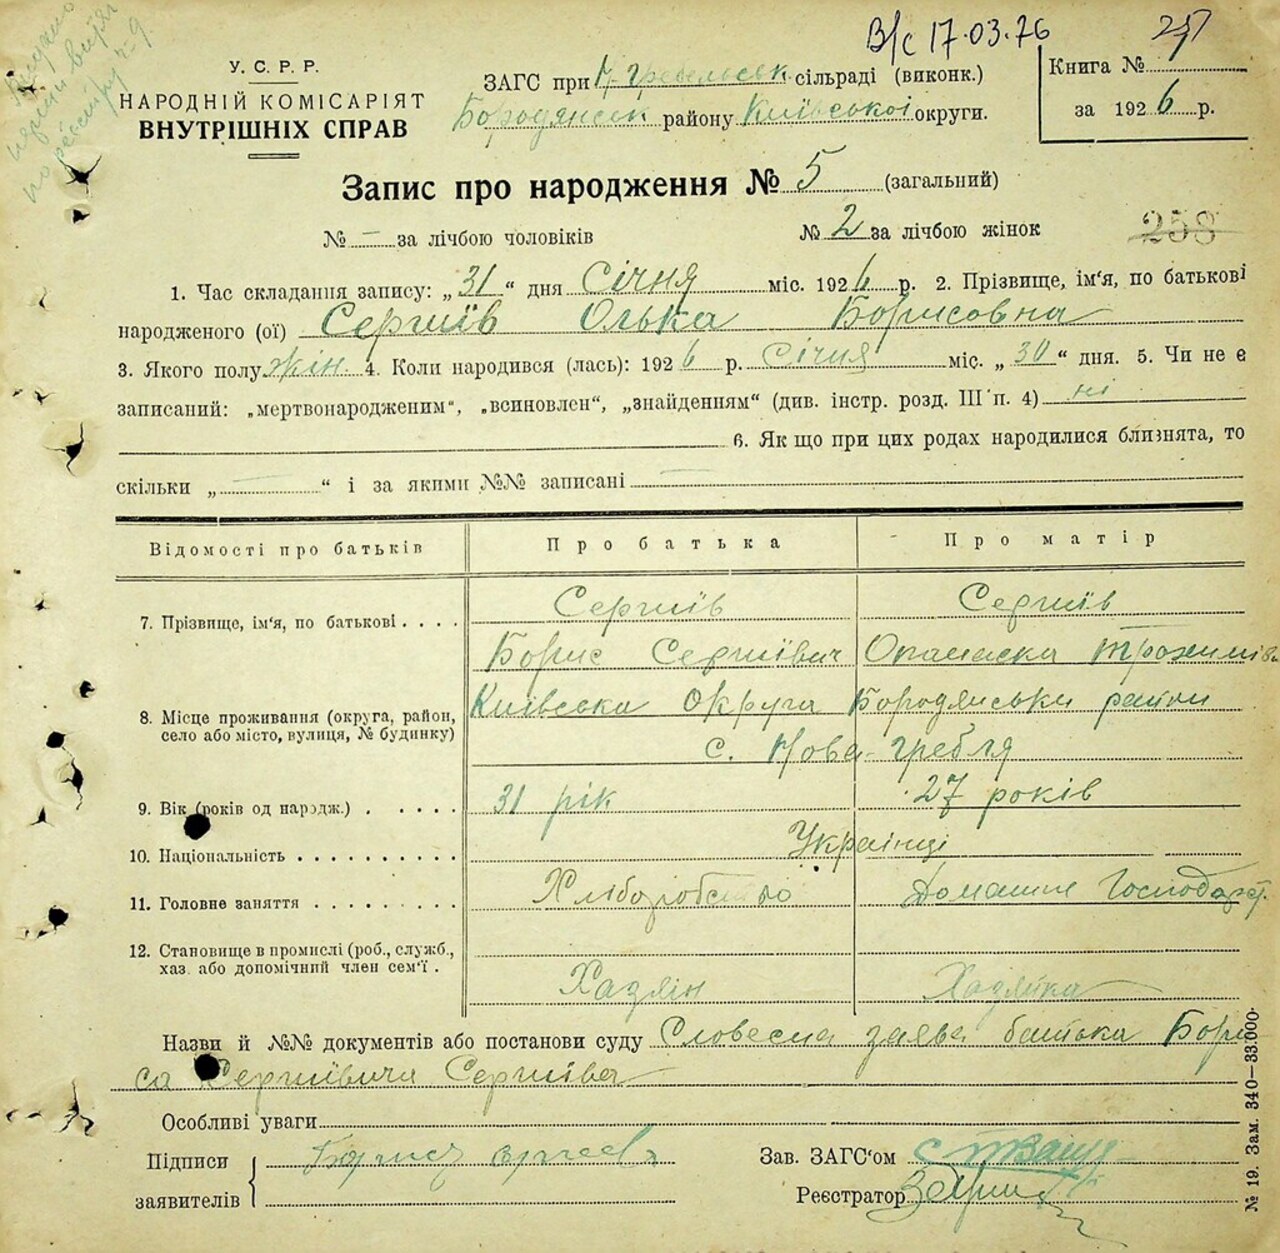 В/с 17.03.76
У. С. Р. Р.
НАРОДНІЙ КОМІСАРІЯТ
ВНУТРІШНІХ СПРАВ
ЗАГС при Н. Гребельськ. сільраді (виконк.)
Бородянськ району Київської округи.
Книга №
за 1926 р.
Запис про народження № 5 (загальний)
№ – за лічбою чоловіків
№ 2 за лічбою жінок
258
1. Час складання запису: „31“ дня Січня міс. 1926 р. 2. Прізвище, ім‘я, по батькові
народженого (ої) Сергиїв Олька Борисовна
3. Якого полу жін. 4. Коли народився (лась): 1926 р. Січня міс. „30“ дня. 5. Чи не є
записаний: „мертвонародженим“, „всиновлен“, „знайденням“ (див. інстр. розд. III п. 4) ні
6. Як що при цих родах народилися близнята, то
скільки „ – “ і за якими №№ записані –
Відомості про батьків Про батька Про матір
7. Прізвище, ім‘я, по батькові Сергиїв Сергиїв
Борис Сергиївич Опанаска
8. Місце проживання (округа, район, село або місто, вулиця, № будинку) Київська Округа Бородянськи район
с. Нова-гребля
9. Вік (років од народж.) 31 рік 27 років
10. Національність Українці
11. Головне заняття Хліборобство Домашнє Господарст.
12. Становище в промислі (роб., служб., хаз. або допомічний член сем‘ї. Хазяїн Хазяйка
Назви й №№ документів або постанови суду Словесна заява батька Бори
са Сергиївича Сергиїва
Особливі уваги
Підписи
заявителів
Зав. ЗАГС‘ом
Реєстратор
№ 19. Зам. 340—33.000.